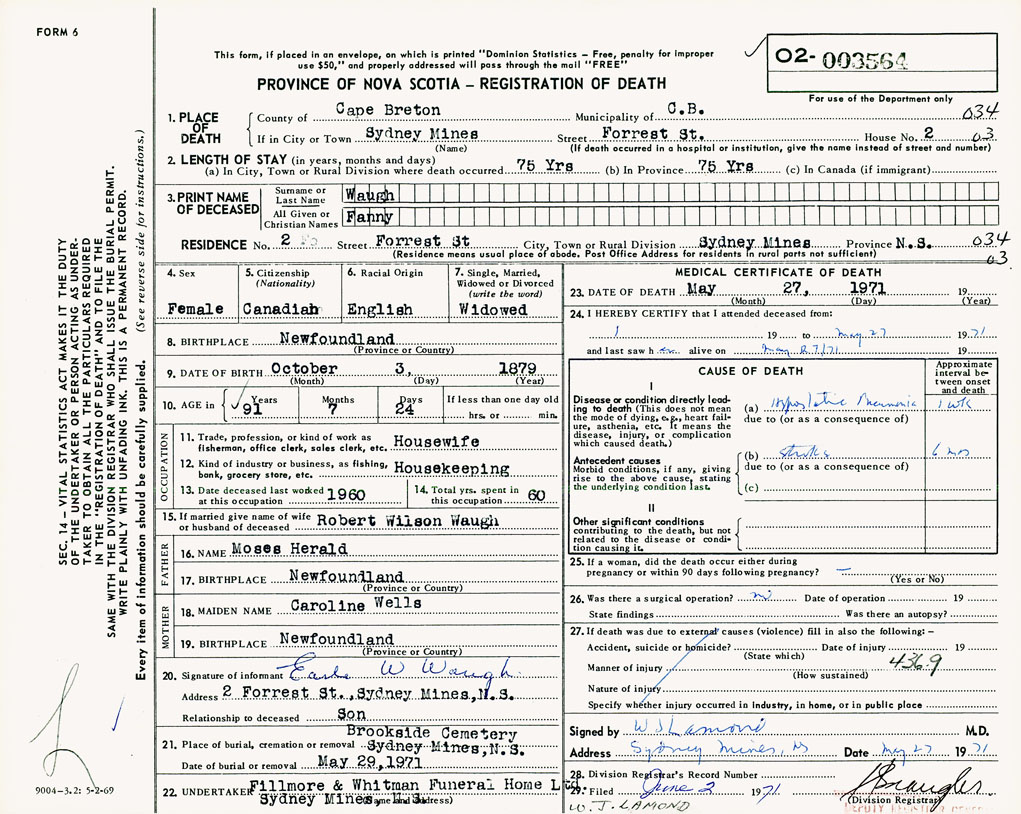 FORM 6
This form, if placed in an envelope, on which is printed "Dominion Statistics – Free, penalty for improper
use $50," and properly addressed will pass through the mail "FREE"
PROVINCE OF NOVA SCOTIA – REGISTRATION OF DEATH
O2- 003564
For use of the Department only
1. PLACE OF DEATH
County of Cape Breton Municipality of C.B. 034
If in City or Town Sydney Mines Street Forrest St. House No. 2 03
(Name) (If death occurred in a hospital or institution, give the name instead of street and number)
2. LENGTH OF STAY (in years, months and days)
(a) In City, Town or Rural Division where death occurred 75 Yrs (b) In Province 75 Yrs (c) In Canada (if immigrant)
3. PRINT NAME OF DECEASED
Surname or Last Name Waugh
All Given or Christian Names Fanny
RESIDENCE No. 2 Street Forrest St City, Town or Rural Division Sydney Mines Province N.S. 034
(Residence means usual place of abode. Post Office Address for residents in rural parts not sufficient) 03
4. Sex
Female
5. Citizenship
(Nationality)
Canadian
6. Racial Origin
English
7. Single, Married,
Widowed or Divorced
(write the word)
Widowed
8. BIRTHPLACE Newfoundland
(Province or Country)
9. DATE OF BIRTH October 3, 1879
(Month) (Day) (Year)
10. AGE in Years 91 Months 7 Days 24
If less than one day old
hrs. or min.
OCCUPATION
11. Trade, profession, or kind of work as
fisherman, office clerk, sales clerk, etc. Housewife
12. Kind of industry or business, as fishing,
bank, grocery store, etc. Housekeeping
13. Date deceased last worked
at this occupation 1960
14. Total yrs. spent in
this occupation 60
15. If married give name of wife
or husband of deceased Robert Wilson Waugh
FATHER
16. NAME Moses Herald
17. BIRTHPLACE Newfoundland
(Province or Country)
MOTHER
18. MAIDEN NAME Caroline Wells
19. BIRTHPLACE Newfoundland
(Province or Country)
20. Signature of informant W Waugh
Address 2 Forrest St., Sydney Mines, N.S.
Relationship to deceased Son
Brookside Cemetery
21. Place of burial, cremation or removal Sydney Mines, N.S.
Date of burial or removal May 29, 1971
22. UNDERTAKER Fillmore & Whitman Funeral Home Ltd.
Sydney Mines N.S.
(Name and Address)
MEDICAL CERTIFICATE OF DEATH
23. DATE OF DEATH May 27, 1971 19
(Month) (Day) (Year)
24. I HEREBY CERTIFY that I attended deceased from:
19 to May 27 1971
and last saw h er alive on May 27/71 19
CAUSE OF DEATH
Approximate interval between onset and death
I
Disease or condition directly lead-
ing to death (This does not
mean the mode of dying, e.g., heart fail-
ure, asthenia, etc. It means the
disease, injury, or complication
which caused death.)
(a) Hypostatic Pneumonia 1 wk
due to (or as a consequence of)
Antecedent causes
Morbid conditions, if any, giving
rise to the above cause, stating
the underlying condition last.
(b) stroke 6 mos
due to (or as a consequence of)
(c)
II
Other significant conditions
contributing to the death, but not
related to the disease or condi-
tion causing it.
25. If a woman, did the death occur either during
pregnancy or within 90 days following pregnancy? –
(Yes or No)
26. Was there a surgical operation? Date of operation 19
State findings Was there an autopsy?
27. If death was due to external causes (violence) fill in also the following: –
Accident, suicide or homicide? Date of injury 19
(State which)
Manner of injury 436.9
(How sustained)
Nature of injury
Specify whether injury occurred in industry, in home, or in public place
Signed by W J Lamond M.D.
Address Sydney Mines, NS Date May 27 1971
28. Division Registrar's Record Number
29. Filed June 2 1971
(Division Registrar)
W. J. LAMOND
SEC. 14 – VITAL STATISTICS ACT MAKES IT THE DUTY
OF THE UNDERTAKER OR PERSON ACTING AS UNDER-
TAKER TO OBTAIN ALL THE PARTICULARS REQUIRED
IN THE "REGISTRATION OF DEATH" AND TO FILE THE
SAME WITH THE DIVISION REGISTRAR WHO SHALL ISSUE THE BURIAL PERMIT.
WRITE PLAINLY WITH UNFADING INK. THIS IS A PERMANENT RECORD.
Every item of information should be carefully supplied. (See reverse side for instructions.)
9004-3.2: 5-2-69